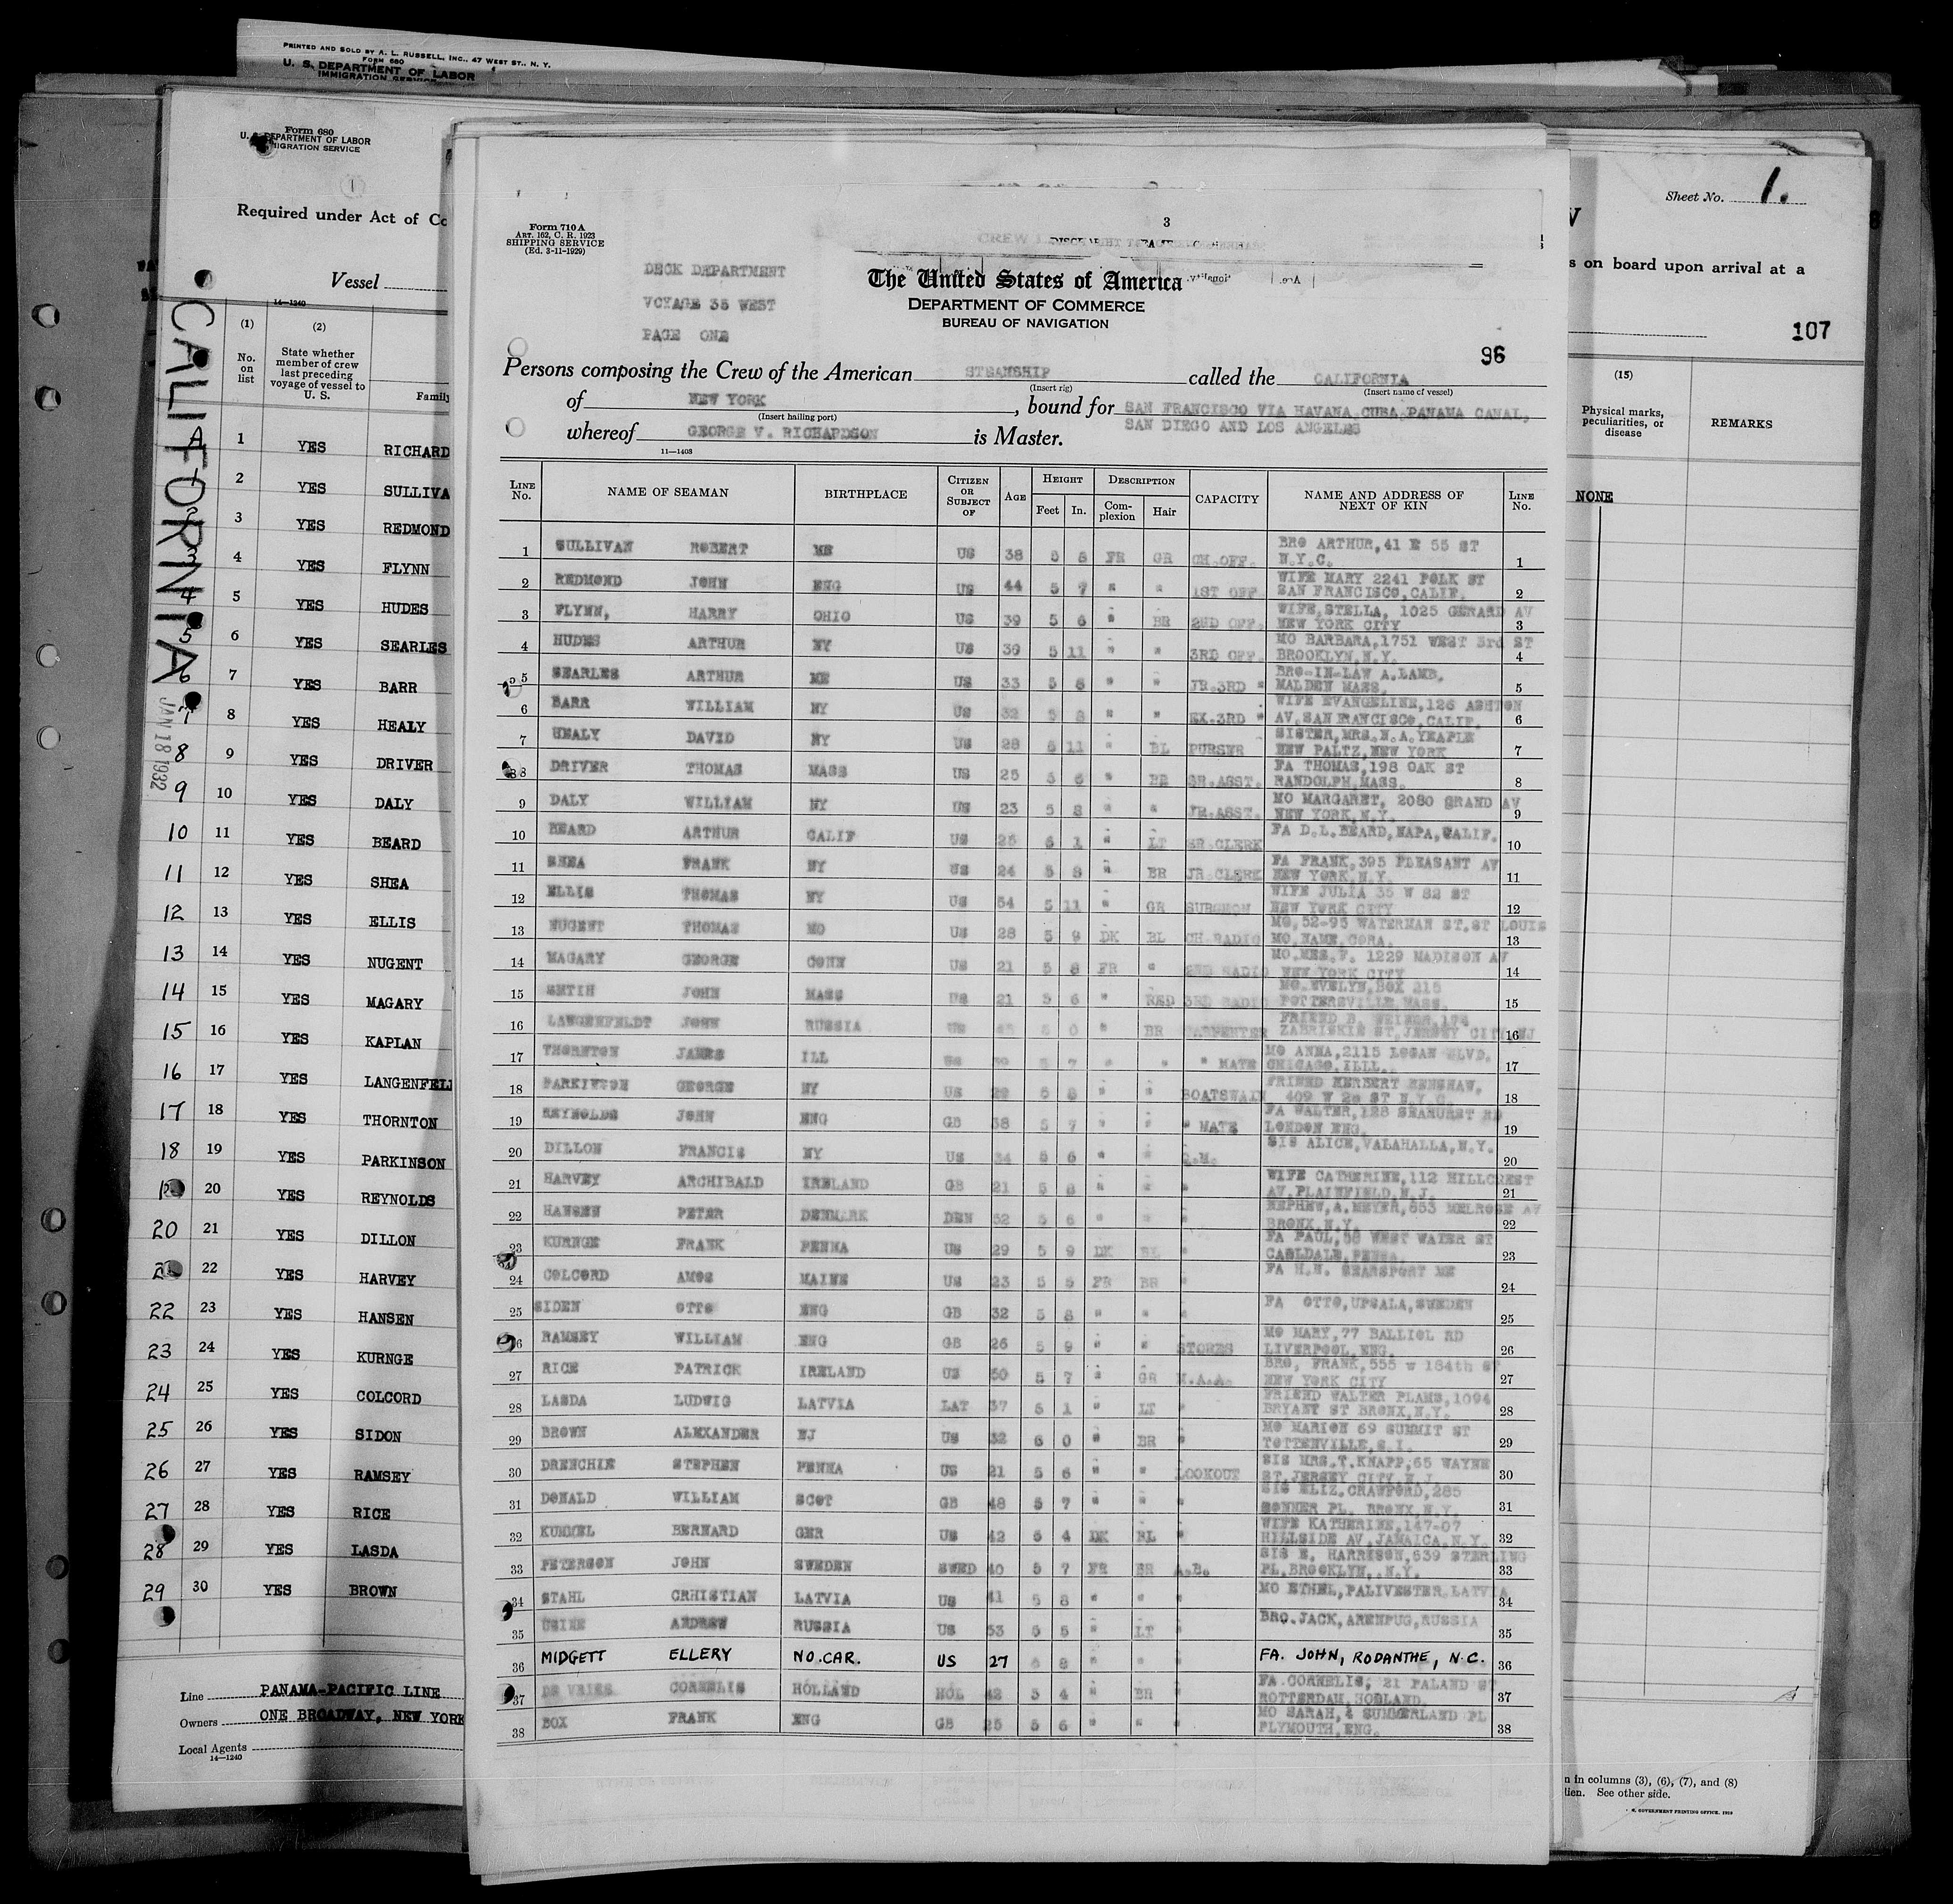 PRINTED AND SOLD BY A. L. RUSSELL, INC., 47 WEST ST., N. Y.
FORM 680
U. S. DEPARTMENT OF LABOR
IMMIGRATION SERVICE
Form 680
U. S. DEPARTMENT OF LABOR
IMMIGRATION SERVICE
1
Required under Act of Co
Vessel
14—1240
(1) (2)
No. on list
State whether member of crew last preceding voyage of vessel to U. S.
Family
CALIFORNIA
JAN 18 1932
A 1 YES RICHARD
1 2 YES SULLIVA
2 3 YES REDMOND
3 4 YES FLYNN
4 5 YES HUDES
5 6 YES SEARLES
6 7 YES BARR
7 8 YES HEALY
8 9 YES DRIVER
9 10 YES DALY
10 11 YES BEARD
11 12 YES SHEA
12 13 YES ELLIS
13 14 YES NUGENT
14 15 YES MAGARY
15 16 YES KAPLAN
16 17 YES LANGENFEL
17 18 YES THORNTON
18 19 YES PARKINSON
20 YES REYNOLDS
20 21 YES DILLON
22 YES HARVEY
22 23 YES HANSEN
23 24 YES KURNGE
24 25 YES COLCORD
25 26 YES SIDON
26 27 YES RAMSEY
27 28 YES RICE
28 29 YES LASDA
29 30 YES BROWN
Line PANAMA-PACIFIC LINE
Owners ONE BROADWAY, NEW YORK
Local Agents
14—1240
3
Form 710 A
ART. 162, C. R. 1923
SHIPPING SERVICE
(Ed. 3-11-1929)
DECK DEPARTMENT
VOYAGE 35 WEST
PAGE ONE
The United States of America
DEPARTMENT OF COMMERCE
BUREAU OF NAVIGATION
96
Persons composing the Crew of the American STEAMSHIP called the CALIFORNIA
(Insert rig) (Insert name of vessel)
of NEW YORK, bound for SAN FRANCISCO VIA HAVANA CUBA, PANAMA CANAL,
(Insert hailing port)
SAN DIEGO AND LOS ANGELES
whereof GEORGE V. RICHARDSON is Master.
11—1408
LINE No. NAME OF SEAMAN BIRTHPLACE CITIZEN OR SUBJECT OF AGE HEIGHT Feet In. DESCRIPTION Complexion Hair CAPACITY NAME AND ADDRESS OF NEXT OF KIN LINE No.
1 SULLIVAN ROBERT ME US 38 5 8 FR GR CH.OFF. BRO ARTHUR, 41 E 55 ST N.Y.C. 1
2 REDMOND JOHN ENG US 44 5 7 " " 1ST OFF WIFE MARY 2241 POLK ST SAN FRANCISCO, CALIF. 2
3 FLYNN, HARRY OHIO US 39 5 6 " BR 2ND OFF. WIFE, STELLA, 1025 GERARD AV NEW YORK CITY 3
4 HUDES ARTHUR NY US 30 5 11 " " 3RD OFF. MO BARBARA, 1751 WEST 3rd ST BROOKLYN, N.Y. 4
5 SEARLES ARTHUR ME US 33 5 8 " " JR.3RD " BRO-IN-LAW A.LAMB, MALDEN MASS. 5
6 BARR WILLIAM NY US 32 5 8 " " EX.3RD " WIFE EVANGELINE, 126 ASHTON AV, SAN FRANCISCO, CALIF. 6
7 HEALY DAVID NY US 28 5 11 " BL PURSER SISTER, MRS. N.A. YEAPLE NEW PALTZ, NEW YORK 7
8 DRIVER THOMAS MASS US 25 5 6 " BR SR.ASST. FA THOMAS, 198 OAK ST RANDOLPH, MASS. 8
9 DALY WILLIAM NY US 23 5 8 " " JR.ASST. MO MARGARET, 2080 GRAND AV NEW YORK, N.Y. 9
10 BEARD ARTHUR CALIF US 25 6 1 " LT SR CLERK FA D.L. BEARD, NAPA, CALIF. 10
11 SHEA FRANK NY US 24 5 8 " BR JR CLERK FA FRANK, 395 PLEASANT AV NEW YORK, N.Y. 11
12 ELLIS THOMAS NY US 54 5 11 " GR SURGEON WIFE JULIA 35 W 82 ST NEW YORK CITY 12
13 NUGENT THOMAS MO US 28 5 9 DK BL CH.RADIO MO, 52-95 WATERMAN ST, ST LOUIS MO. NAME, CORA. 13
14 MAGARY GEORGE CONN US 21 5 8 FR " 2ND RADIO MO. MRS. F. 1229 MADISON AV NEW YORK CITY 14
15 SMTIH JOHN MASS US 21 5 6 " RED 3RD RADIO MO. EVELYN, BOX 215 POTTERSVILLE MASS. 15
16 LANGENFELDT JOHN RUSSIA US 6 0 " BR CARPENTER FRIEND B. 174 ZABRISKIE ST, JERSEY CITY NJ 16
17 THORNTON JAMES ILL US 39 5 7 " " " MATE MO ANNA, 2115 LOGAN BLVD. CHICAGO, ILLL. 17
18 PARKINSON GEORGE NY US 29 5 8 " " BOATSWAIN FRIEND HERBERT RENSHAW, 409 W ST N.Y.C. 18
19 REYNOLDS JOHN ENG GB 38 5 7 " " " MATE FA WALTER, 128 SEAHURST RD LONDON ENG. 19
20 DILLON FRANCIS NY US 34 5 6 " " Q.M. SIS ALICE, VALAHALLA, N.Y. 20
21 HARVEY ARCHIBALD IRELAND GB 21 5 8 " " " WIFE CATHERINE, 112 HILLCREST AV, PLAINFIELD, N.J. 21
22 HANSEN PETER DENMARK DEN 52 5 6 " " " NEPHEW, A. MEYER, 853 MELROSE AV BRONX, N.Y. 22
23 KURNGE FRANK PENNA US 29 5 9 DK BL " FA PAUL, 58 WEST WATER ST CAOLDALE, PENNA. 23
24 COLCORD AMOS MAINE US 23 5 5 FR BR " FA H.W. SEARSPORT ME 24
25 SIDEN OTTO ENG GB 32 5 8 " " " FA OTTO, UPSALA, SWEDEN 25
26 RAMSEY WILLIAM ENG GB 26 5 9 " " STORES MO MARY, 77 BALLIOL RD LIVERPOOL, ENG. 26
27 RICE PATRICK IRELAND US 50 5 7 " GR M.A.A. BRO, FRANK, 555 w 184th ST NEW YORK CITY 27
28 LASDA LUDWIG LATVIA LAT 37 5 1 " LT " FRIEND WALTER PLAMS, 1094 BRYANT ST BRONX, N.Y. 28
29 BROWN ALEXANDER NJ US 32 6 0 " BR " MO MARION 69 SUMMIT ST TOTTENVILLE, S.I. 29
30 DRENCHIE STEPHEN PENNA US 21 5 6 " " LOOKOUT SIS MRS. T. KNAPP, 65 WAYNE ST. JERSEY CITY, N.J. 30
31 DONALD WILLIAM SCOT GB 48 5 7 " " " SIS ELIZ. CRAWFORD, 285 PL. BRONX N.Y. 31
32 KUMMEL BERNARD GER US 42 5 4 DK BL " WIFE KATHERINE, 147-07 HILLSIDE AV, JAMAICA, N.Y. 32
33 PETERSON JOHN SWEDEN SWED 40 5 7 FR BR A.B. SIS E. HARRISON, 539 STERLING PL, BROOKLYN, N.Y. 33
34 STAHL CRHISTIAN LATVIA US 41 5 8 " " " MO ETHEL, PALIVESTER LATVIA 34
35 ANDREW RUSSIA US 53 5 5 " LT " BRO. JACK, ARENPUG, RUSSIA 35
36 MIDGETT ELLERY NO.CAR. US 27 8 " " " FA. JOHN, RODANTHE, N.C. 36
37 DE VRIES CORNELIS HOLLAND HOL 42 5 4 " BR " FA. CORNELIS, 21 PALAND ST ROTTERDAM, HOLLAND. 37
38 BOX FRANK ENG GB 25 5 6 " " " MO SARAH, 4 SUMMERLAND PL PLYMOUTH, ENG. 38
Sheet No. 1.
s on board upon arrival at a
107
(15)
Physical marks, peculiarities, or disease
REMARKS
NONE
n in columns (3), (6), (7), and (8)
lien. See other side.
GOVERNMENT PRINTING OFFICE